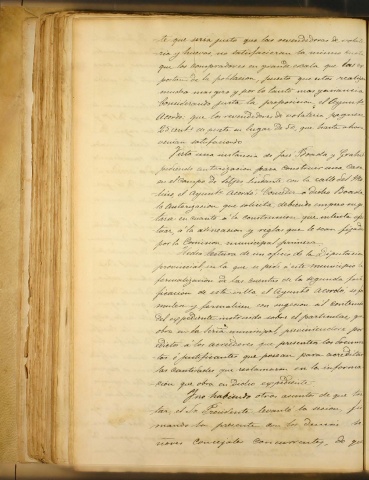 to que seria justo que los revendedores de volate
ria y huevos no satisfacieran la misma cuota
que los compradores en grande escala que las ex
portan de la poblacion, puesto que estos realizan
mucha mas y por lo tanto mas ganancia
Considerando justa la proposicion, el Ayuntº
Acordó, que los revendedores de volateria paguen
25 cents de peseta en lugar de 50, que hasta ahora
venian satisfaciendo
Vista una instancia de Jose Boada y
pidiendo autorizacion para construir una casa
en el campo de lindante con la calle del
el Ayuntº Acordó: Conceder a dicho Boada
la autorizacion que solicita, debiendo empero suje
tarse en cuanto á la construccion que intenta efec
tuar, á la alineacion y reglas que le sean fijadas
por la Comision municipal primera.
Dada lectura de un oficio de la Diputacion
provincial, en la que se pide á este municipio la
formalizacion de las cuentas de la segunda forti
ficacion de esta villa el Ayuntº Acordó, se
y formalicen con sugecion al contenido
del expediente instruido sobre el particular, que
obra en la Sria municipal, previniendose por
edicto á los acreedores que presenten los documen
tos ó justificantes que posean para acreditar
las cantidades que reclamaron en la informa
cion que obra en dicho expediente.
Y no habiendo otros asuntos de que tra
tar, el Sr Presidente levantó la sesion, fir
mando la presente con los demas Se
ñores concejales concurrentes, de que